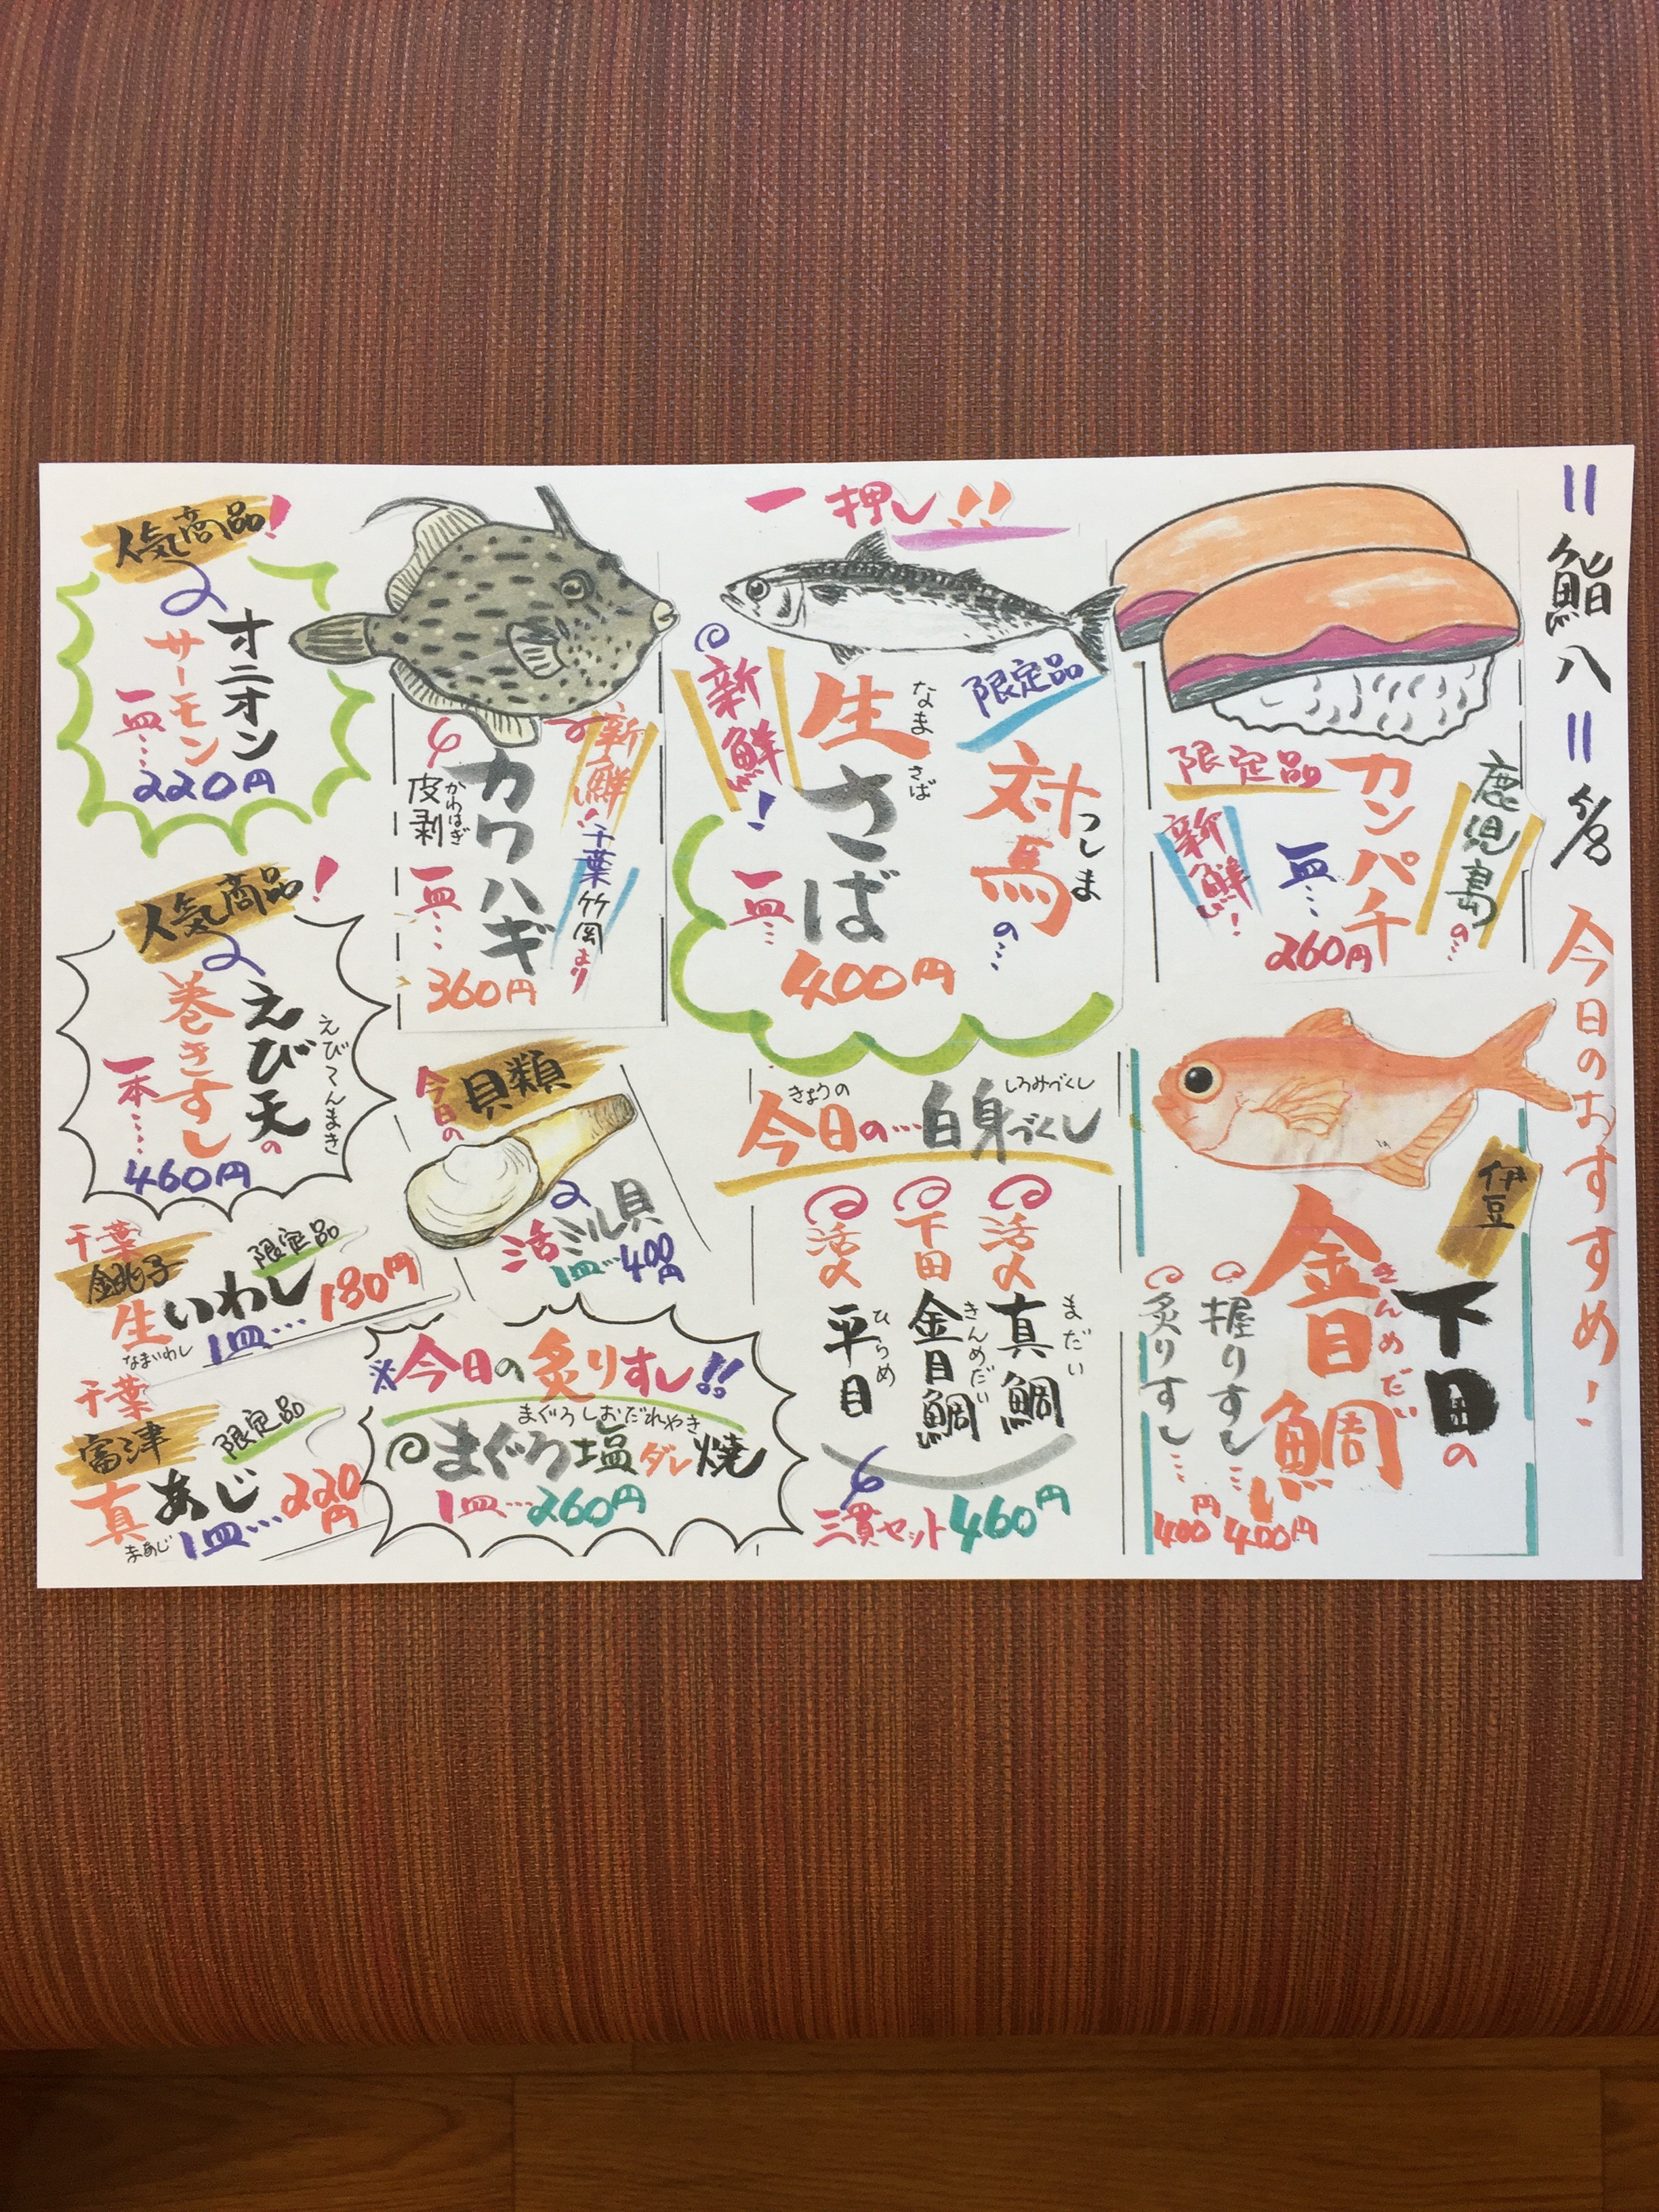 鮨八
今日のおすすめ!
鹿児島の…
カンパチ
限定品
新鮮!
一皿…
260円
伊豆
下田の
金目鯛
きんめだい
握りすし…400円
炙りすし…400円
一押し!!
限定品
対馬の…
つしま
生さば
なま
さば
新鮮!
一皿…
400円
きょうの
しろみづくし
今日の…白身づくし
活〆
真鯛
まだい
下田
金目鯛
きんめだい
活〆
平目
ひらめ
三貫セット460円
新鮮!!
千葉竹岡より
カワハギ
皮剥
かわはぎ
一皿…
360円
今日の
貝類
活ミル貝
1皿…400円
※今日の炙りすし!!
まぐろしおだれやき
まぐろ塩ダレ焼
1皿…260円
人気商品!
オニオン
サーモン
一皿…
220円
人気商品!
えび天の
えびてんまき
巻きすし
一本……
460円
千葉
銚子
限定品
生いわし
なまいわし
1皿…180円
千葉
富津
限定品
真あじ
まあじ
1皿…220円